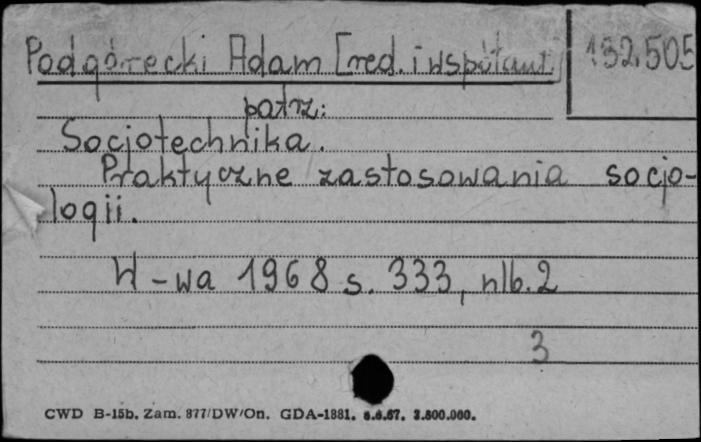 Podgórecki Adam [red. i współaut.] 132.505
patrz:
Socjotechnika.
Praktyczne zastosowania socjo-
logii.
W-wa 1968 s. 333, nlb. 2
3
CWD B-15b. Zam. 877/DW/On. GDA-1881. 6.6.67. 3.800.000.